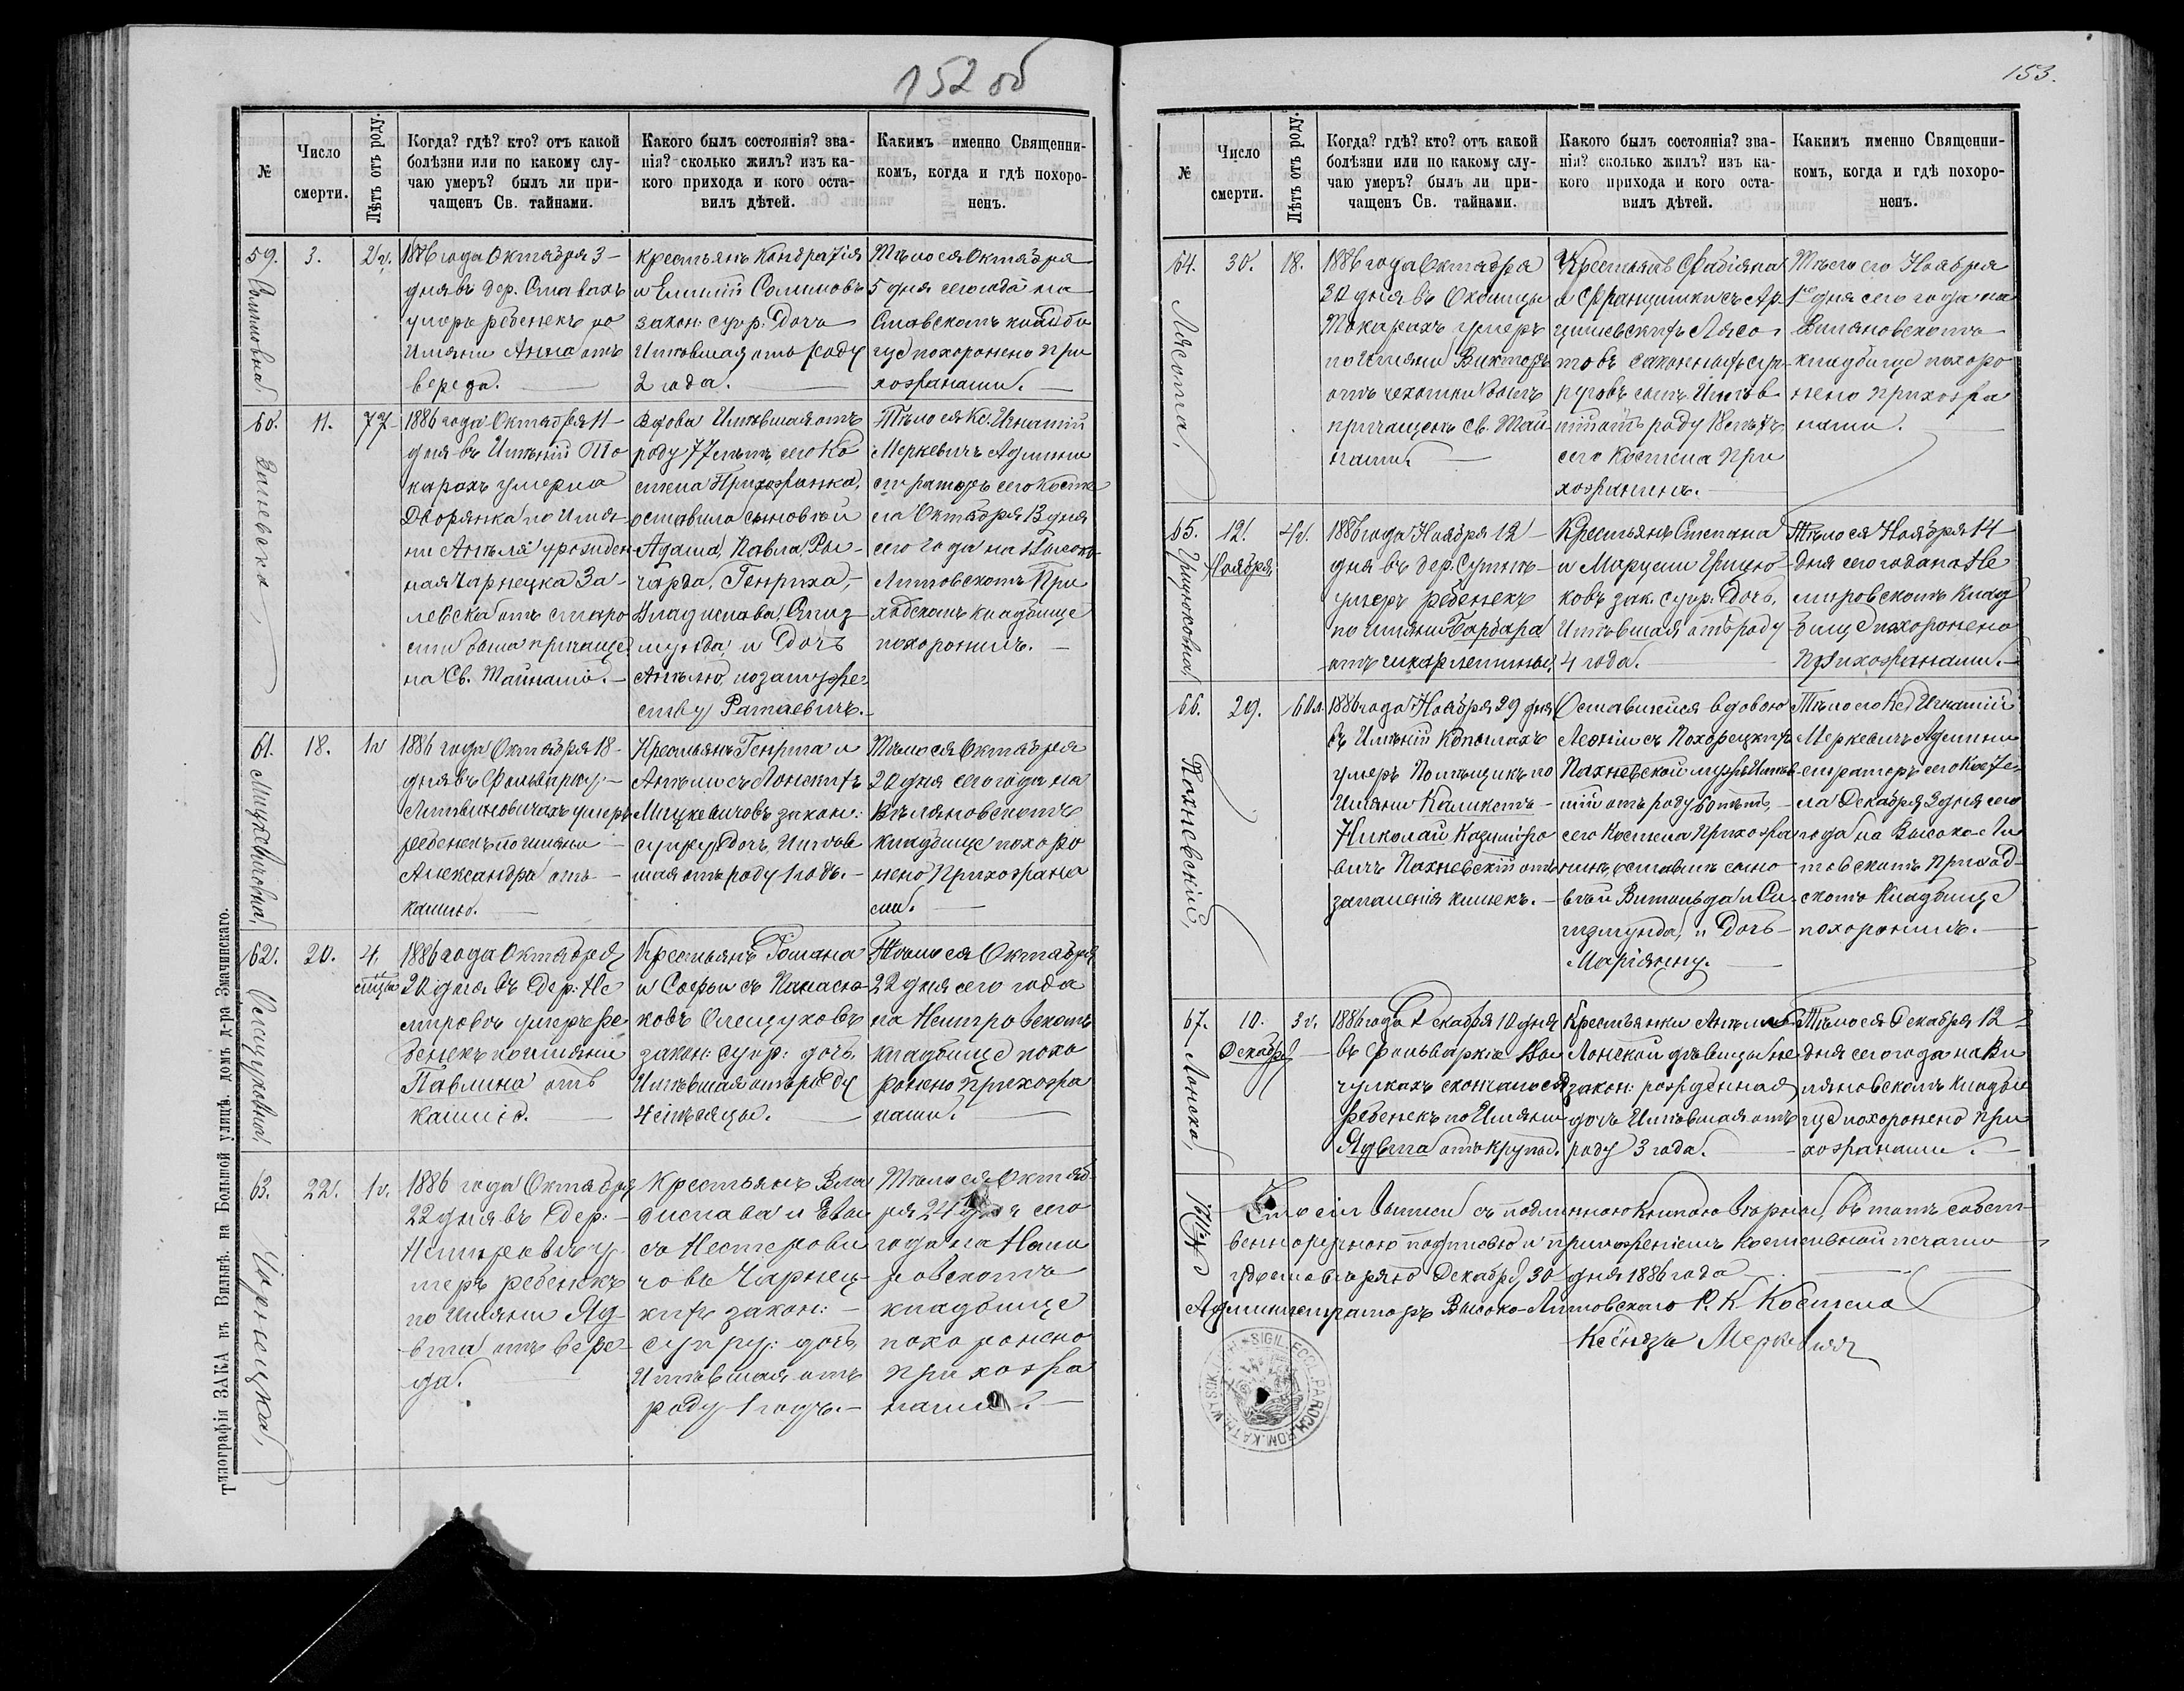 152 об
№
Число
смерти.
Лѣтъ отъ роду.
Когда? гдѣ? кто? отъ какой
болѣзни или по какому слу-
чаю умеръ? былъ ли при-
чащенъ Св. тайнами.
Какого былъ состоянія? зва-
нія? сколько жилъ? изъ ка-
кого прихода и кого оста-
вилъ дѣтей.
Какимъ именно Священни-
комъ, когда и гдѣ похоро-
ненъ.
59.
3.
2 г.
1886 года Октября 3 –
дня въ дер. Ставахъ
умеръ ребенекъ по
Имяни Анна отъ
вереда.
Крестьянъ Кондратія
и Емилій
закон: супр: Дочь
Имѣвшая отъ роду
2 года.
Тѣло ея Октября
5 дня сего года на
Ставскомъ кладби
щѣ похоронено При
хожанами.
60.
Залевска
11.
77
1886 года Октября 11 –
дня въ Имѣній То
карахъ умерла
Дворянка по Имя-
ни Анѣля урожден
ная Чарнецка За-
левска отъ старо
сти была причаще
на Св. Тайнами. –
Вдова Имѣвшая отъ
роду 77 лѣтъ, сего Ко
стела Прихожанка,
оставила сыновей
Адама, Павла, Ры-
чарда, Генриха, –
Владислава,
мунда, и Дочь
Анѣлю, по замуже-
ству Ратаевичъ. –
Тѣло ея Кс. Игнатій
Меркевичъ Админи
страторъ сего Косте
ла Октября 13 дня
сего года на Высоко-
Литовскомъ При
ходскомъ кладбище
похоронилъ. –
61.
Мицкевичовна
18.
1 г
1886 года Октября 18 –
дня въ Фольварку –
Литвиновичахъ умеръ
ребенекъ по имяни –
Александра отъ –
кашлю. –
Крестьянъ Генриха и
Анѣли съ Лонскихъ
Мицкевичовъ закон:
супру: Дочь, Имѣв
шая отъ роду 1 годъ. –
Тѣло ея Октября
20 дня сего года на
Вѣляновскомъ
кладбище похоро
нено Прихожана
ми. –
62.
Олещуковна
20.
4.
1886 года Октября
20 дня въ Дер: Не
мировѣ умеръ ре
бенекъ по имяни
Павлина отъ
кашлю.
Крестьянъ Романа
и Софьи съ Панасю-
ковъ Олещуковъ
закон: супр: дочь,
Имѣвшая отъ роду
4 мѣсяцы. –
Тѣло ея Октября
22 дня сего года
на Немировскомъ
кладбище похо
ронено Прихожа
нами. –
63.
Чарнецка
22.
1 г.
1886 года Октября
22 дня въ Дер: –
Немировѣ у-
меръ ребенекъ
по Имяни Яд-
вига отъ вере-
да.
Крестьянъ Вла
дислава и Евы
съ Нестерови
човъ Чарнец-
кихъ закон: –
супру: дочь
Имѣвшая отъ
роду 1 годъ. –
Тѣло ея Октяб-
ря 24 дня сего
года на Неми
ровскомъ
кладбище
похоронено
Прихожа
нами. –
Типографія ЗАКА въ Вильнѣ, на Большой улицѣ, домъ д-ра Змачинскаго.
153.
№
Число
смерти.
Лѣтъ отъ роду.
Когда? гдѣ? кто? отъ какой
болѣзни или по какому слу-
чаю умеръ? былъ ли при-
чащенъ Св. тайнами.
Какого былъ состоянія? зва-
нія? сколько жилъ? изъ ка-
кого прихода и кого оста-
вилъ дѣтей.
Какимъ именно Священни-
комъ, когда и гдѣ похоро-
ненъ.
64.
Лясота,
30.
18.
1886 года Октября
30 дня въ Околицы
Токарахъ умеръ
по Имяни Викторъ
отъ чахотки былъ
причащенъ Св. Тай-
нами. –
Крестьянъ Фабіяна
и Францишки съ Ар
цишевскихъ Лясо-
товъ законныхъ суп-
руговъ сынъ Имѣв
шій отъ роду 18 лѣтъ
сего Костела При
хожанинъ. –
Тѣло его Ноября
1го дня сего года на
Виляновскомъ
кладбище похоро
нено Прихожа
нами. –
65.
Грицюковна
12.
Ноября
4 г.
1886 года Ноября 12 –
дня въ дер. Сутнѣ –
умеръ ребенекъ
по имяни Барбара
отъ шкарлятины.
Крестьянъ Степана
и Марцели Грицю-
ковъ зак. супр. Дочь,
Имѣвшая отъ роду
4 года. –
Тѣло ея Ноября 14 –
дня сего года на Не
мировскомъ Клад
бище похоронено
Прихожанами. –
66.
Пахневскій,
29.
60 л.
1886 года Ноября 29 дня
въ Имѣній Копылахъ
умеръ Помѣщикъ по
Имяни Каликстъ –
Николай Казиміро
вичъ Пахневскій отъ
запаленія кишекъ. –
Оставшейся вдовою
Леоніи съ Похорецкихъ
Пахневской мужъ Имѣв-
шій отъ роду 60 лѣтъ, –
сего Костела Прихожа
нинъ, оставилъ сыно
вей Витольда и Си
гизмунда, и Дочь –
Маріянну. –
Тѣло его Кс Игнатій
Меркевичъ Админи
страторъ сего Косте-
ла Декабря 3 дня сего
года на Высоко-Ли
товскомъ Приход-
скомъ Кладбище
похоронилъ. –
67.
Лонска,
10.
Декабр
3 г.
1886 года Декабря 10 дня
въ фольваркѣ
скончалося
ребенекъ по Имяни –
Ядвига отъ крупы.
Крестьянки Анѣли
Лонской дѣвицы не
закон: рожденная
дочь Имѣвшая отъ
роду 3 года. –
Тѣло ея Декабря 12 –
дня сего года на Ви
ляновскомъ Кладби
щѣ похоронено При
хожанами. –
Что сіи выписи съ подлинною книгою вѣрны, въ томъ собст-
венноручною подписью и приложеніемъ Костельной печати
удостовѣряю Декабря 30 дня 1886 года
Администраторъ Высоко-Литовскаго Р. К. Костела
Ксёндзъ Меркевичъ
SIGIL. ECCL. PAROCH. ROM. KATH. WYSOK. LITH.